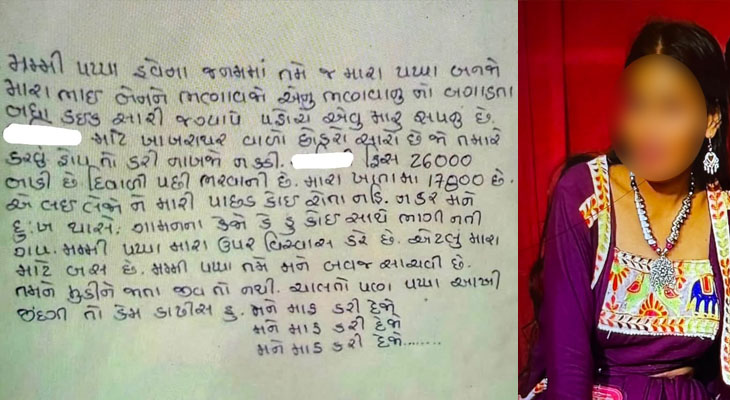 મમ્મી પપ્પા હવેના જનમમાં તમે જ મારા પપ્પા બનજો
મારા ભાઈ બેનને ભણાવજો એનુ ભણાવાનુ નો બગાડતા
બધા કઇંક સારી જગ્યાએ પહોંચે એવુ મારુ સપનું છે.
માટે ખાખરાથર વાળો છોકરો સારો છે જો તમારે
કરવું હોય તો કરી નાખજો નક્કી. ફિસ 26000
બાકી છે દિવાળી પછી ભરવાની છે. મારા ખાતામા 17800 છે.
એ લઇ લેજો ને મારી પાછળ કોઇ રોતા નહિ. નકર મને
દુ:ખ થાસે. ગામનના કેજો કે હુ કોઇ સાથે ભાગી નતી
ગય. મમ્મી પપ્પા મારા ઉપર વિસ્વાસ કરે છે. એટલુ મારા
માટે બસ છે. મમ્મી પપ્પા તમે મને બવજ સાચવી છે.
તમને મુકીને જાતા જીવ તો નથી. ચાલતો પણ પપ્પા આખી
જીંદગી તો કેમ કાઢીસ હુ. મને માફ કરી દેજો
મને માફ કરી દેજો
મને માફ કરી દેજો......